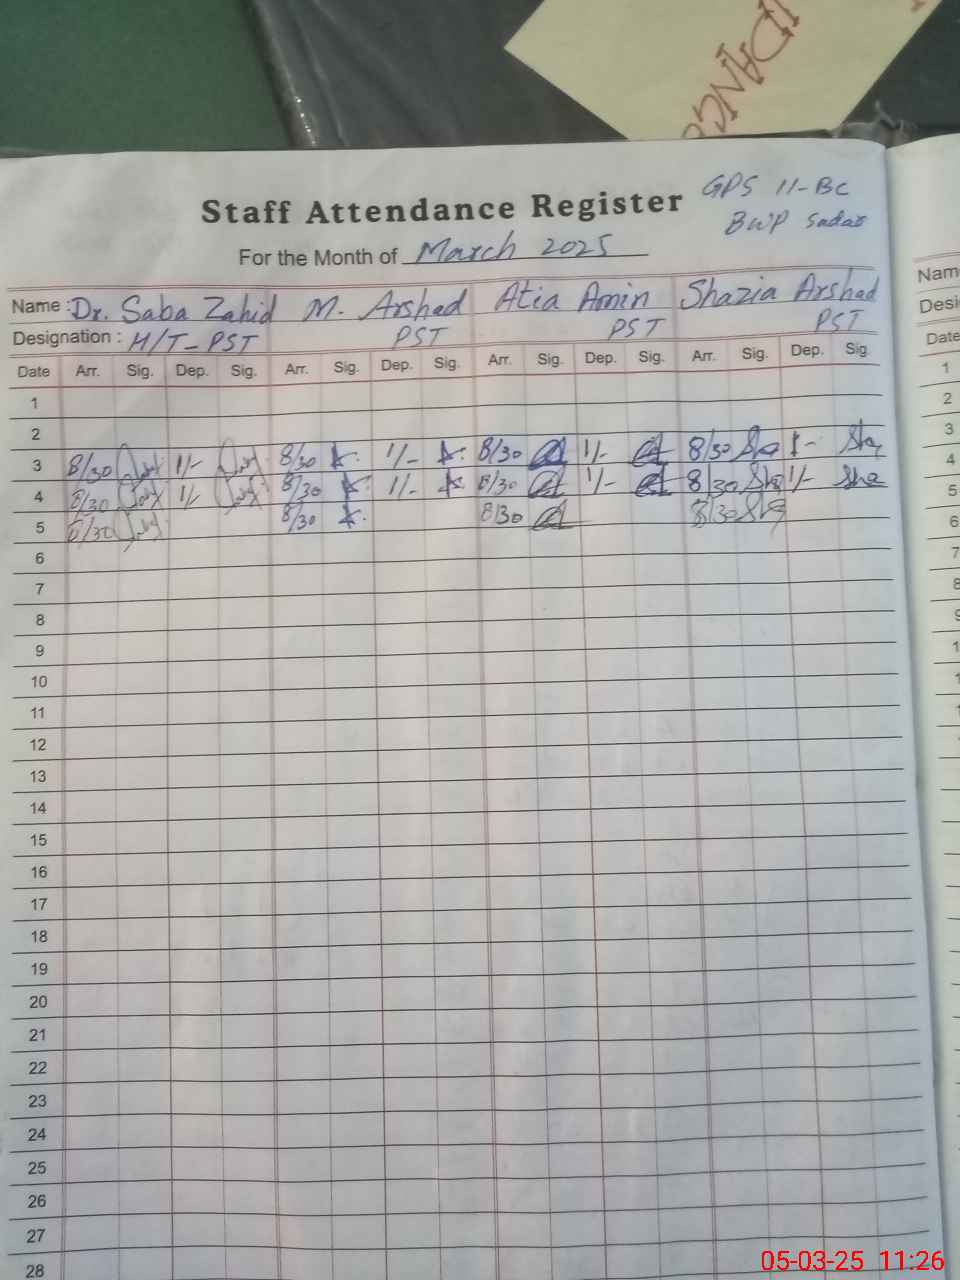 DANGE
Staff Attendance Register
GPS 11-BC
BWP Sadar
For the Month of March 2025
Name : Dr. Saba Zahid M. Arshad Atia Amin Shazia Arshad
Designation : H/T-PST PST PST PST
Date Arr. Sig. Dep. Sig. Arr. Sig. Dep. Sig. Arr. Sig. Dep. Sig. Arr. Sig. Dep. Sig.
1
2
3 8/30 1/- 8/30 1/- 8/30 1/- 8/30 Sha 1/- Sha
4 8/30 1/- 8/30 1/- 8/30 1/- 8/30 Sha 1/- Sha
5 8/30 8/30 8/30 8/30 Sha
6
7
8
9
10
11
12
13
14
15
16
17
18
19
20
21
22
23
24
25
26
27
28
Nam
Desi
Date
1
2
3
4
5
6
7
8
05-03-25 11:26